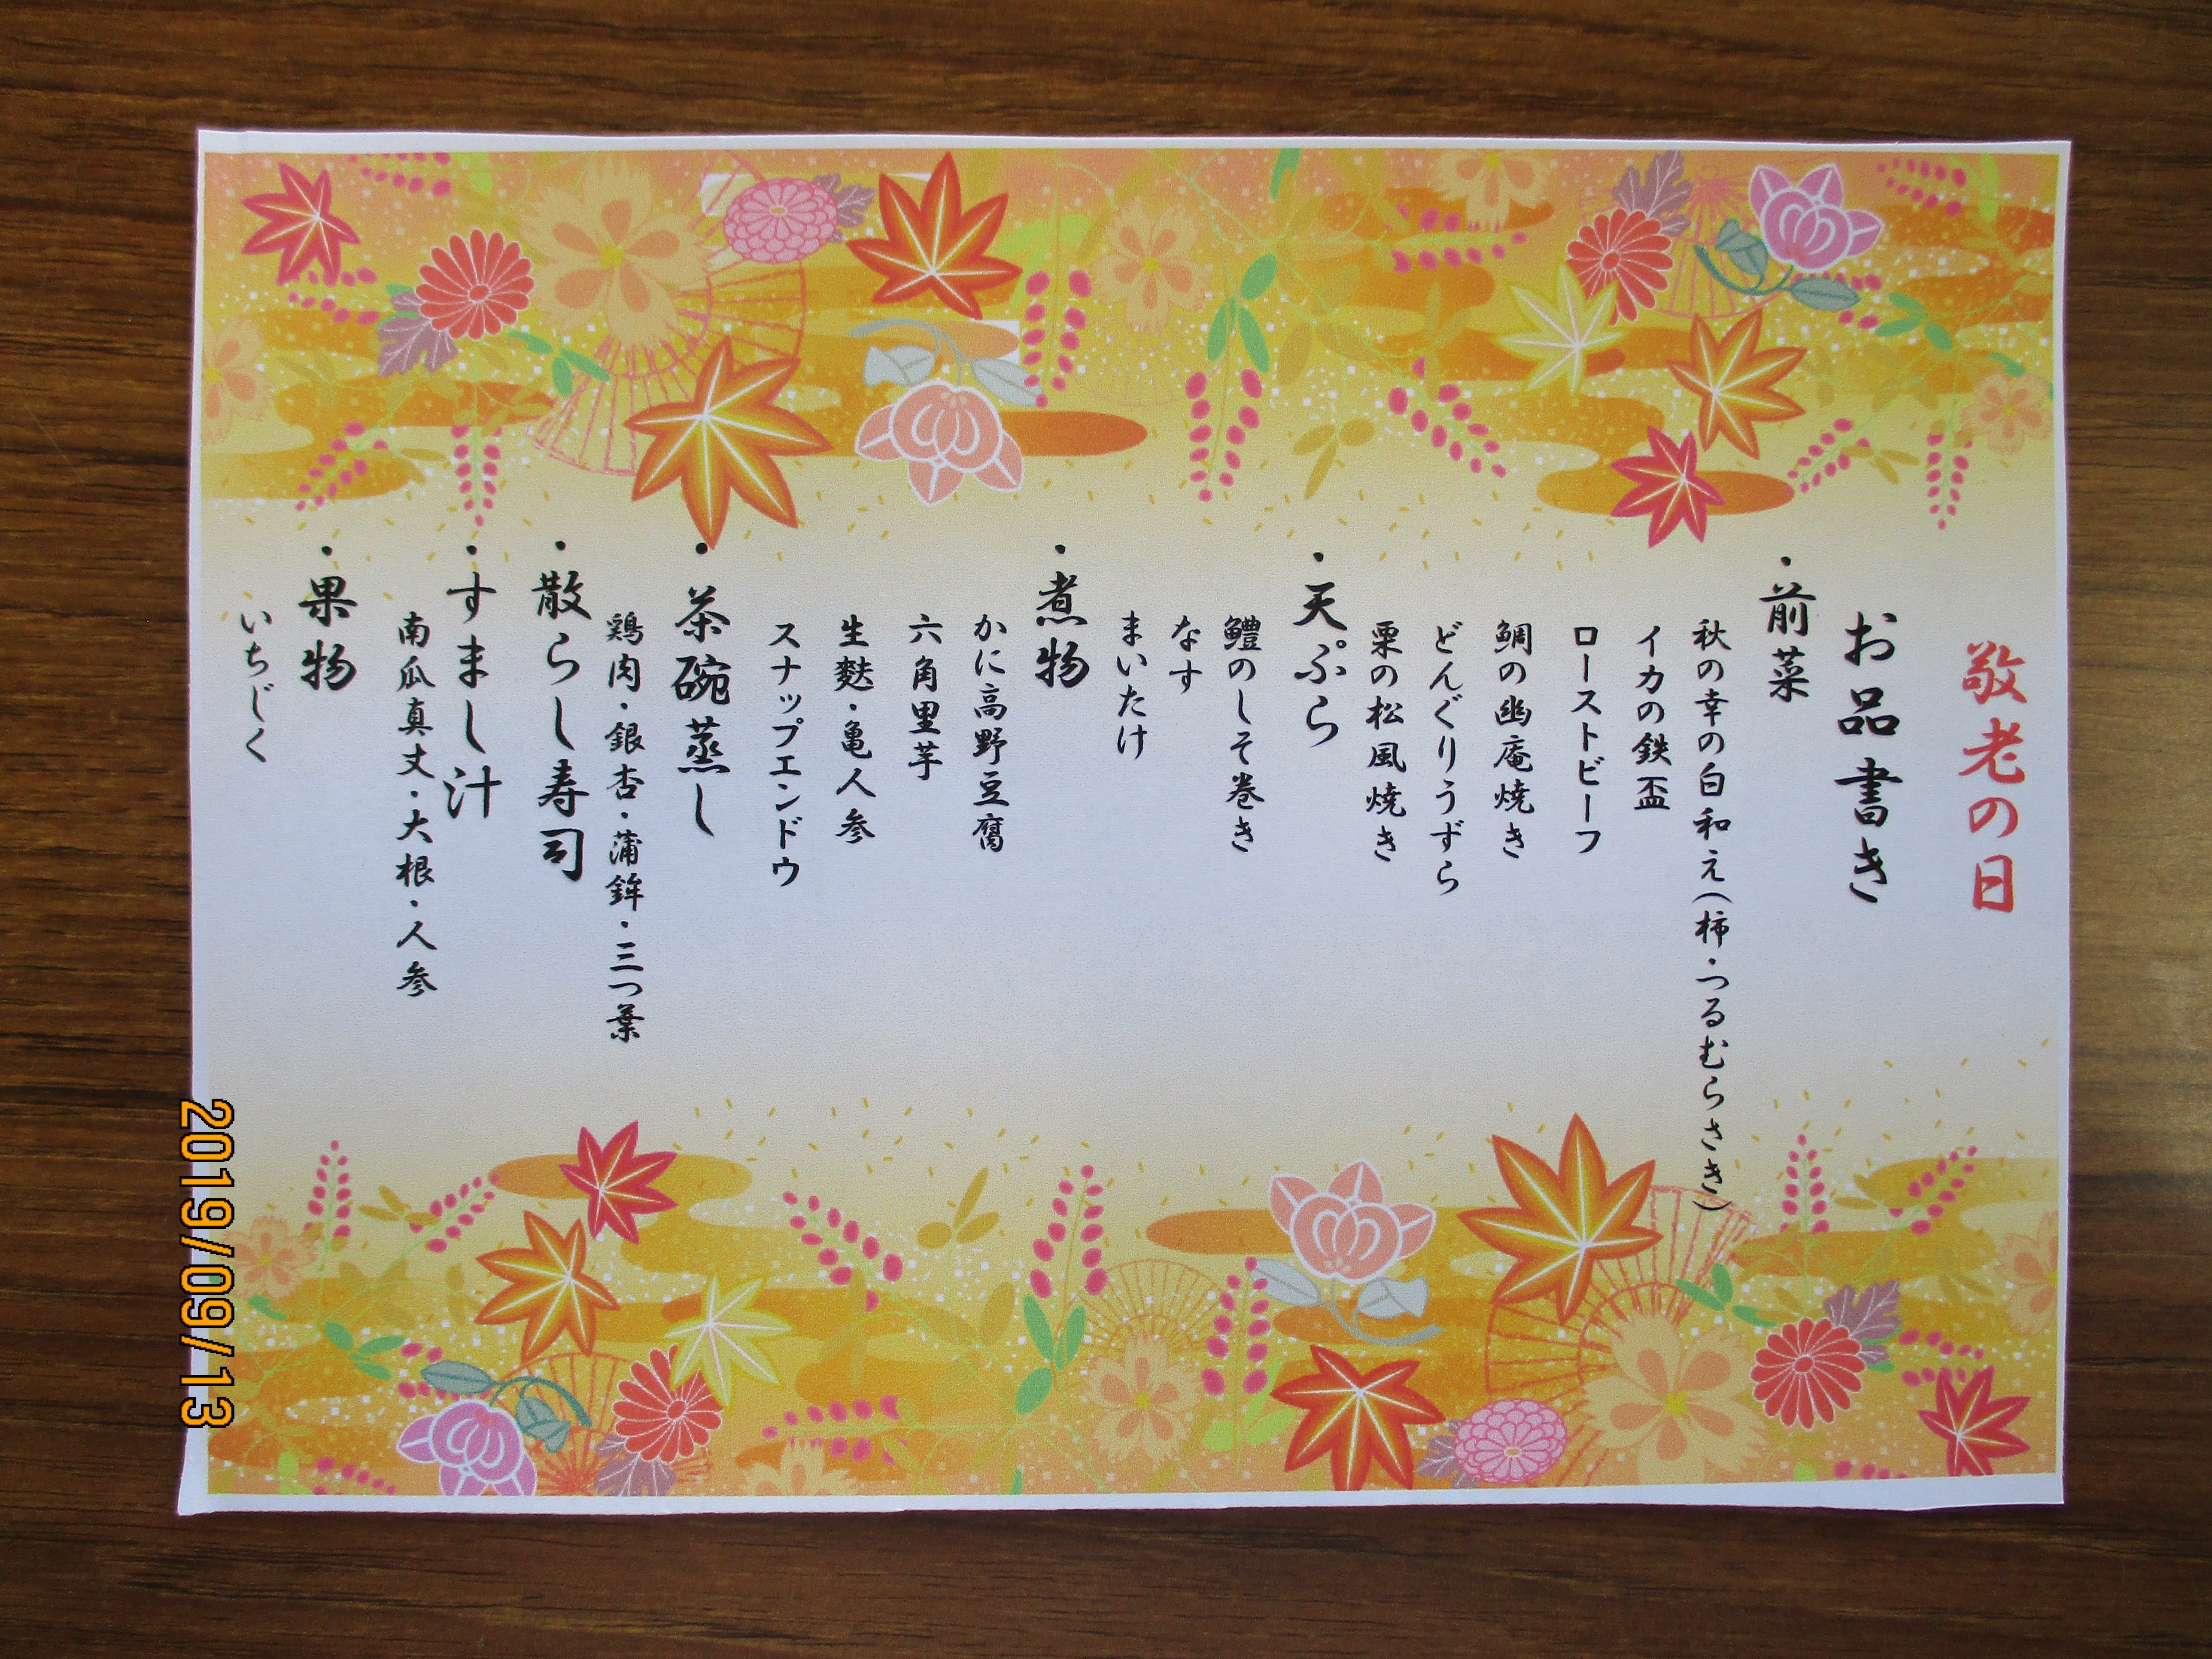 敬老の日
お品書き
・前菜
秋の幸の白和え(柿・つるむらさき)
イカの鉄盃
ローストビーフ
鯛の幽庵焼き
どんぐりうずら
栗の松風焼き
・天ぷら
鱧のしそ巻き
なす
まいたけ
・煮物
かに高野豆腐
六角里芋
生麩・亀人参
スナップエンドウ
・茶碗蒸し
鶏肉・銀杏・蒲鉾・三つ葉
・散らし寿司
・すまし汁
南瓜真丈・大根・人参
・果物
いちじく
2019/09/13